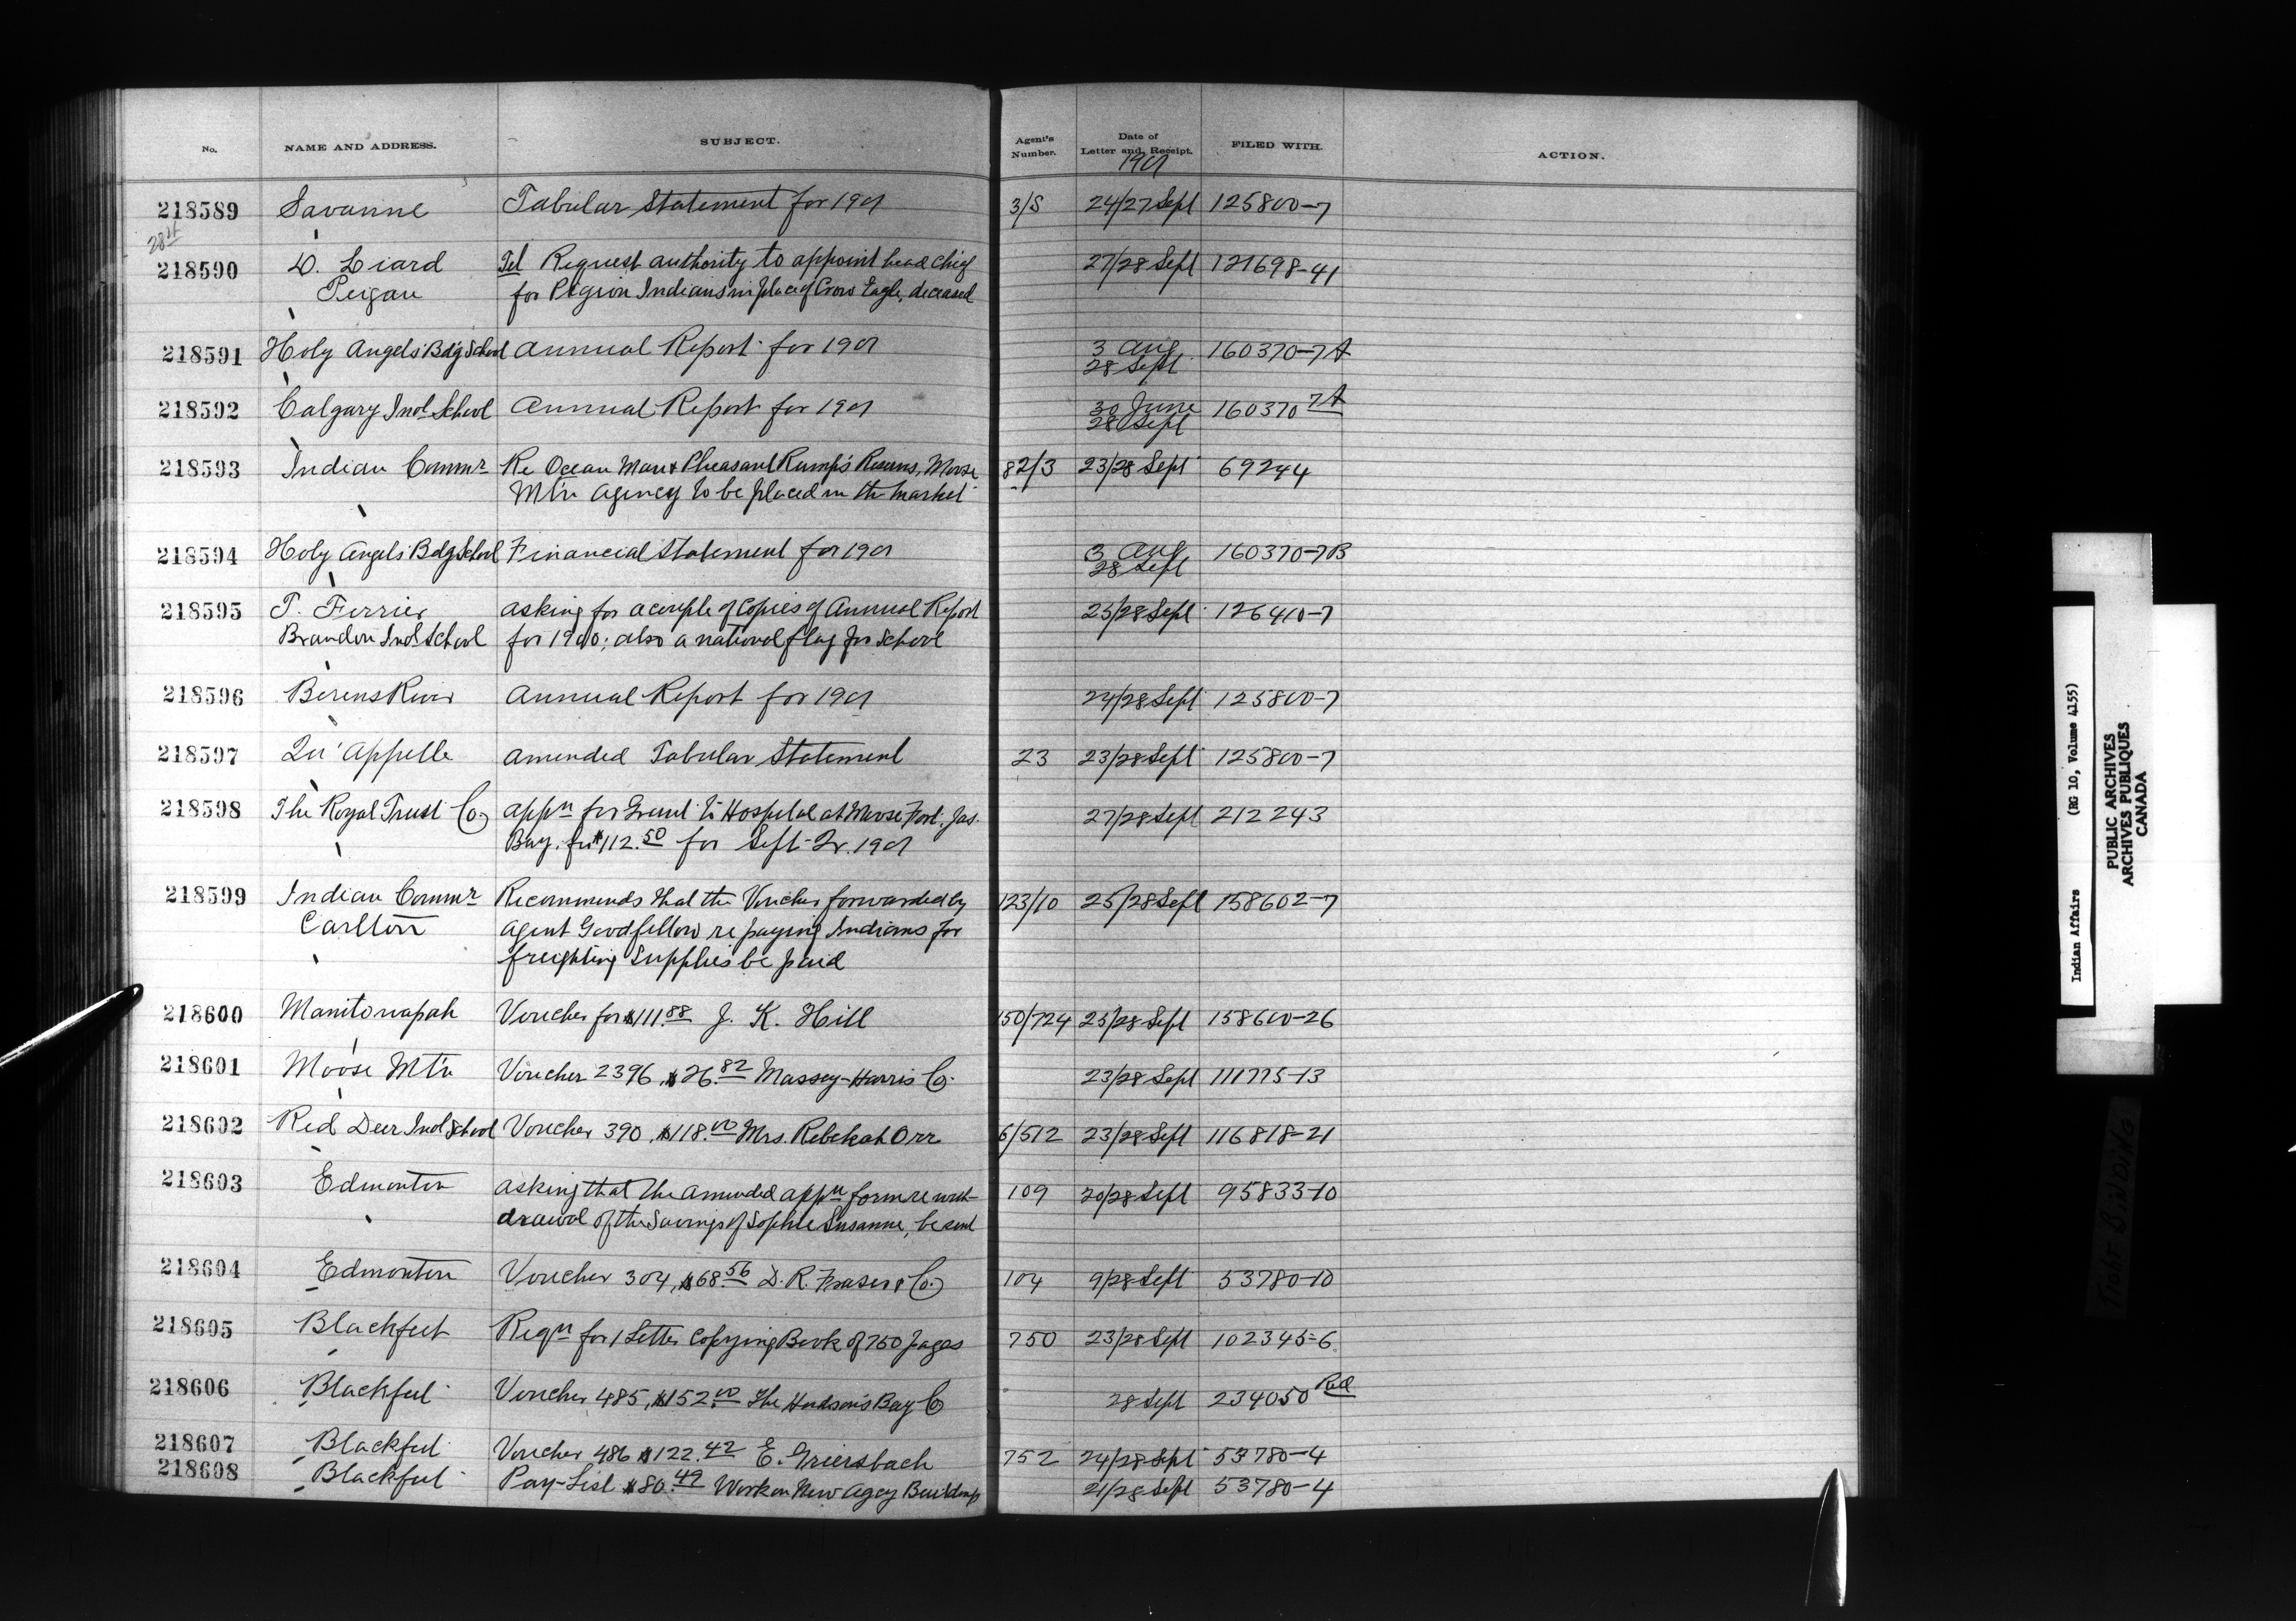 No. NAME AND ADDRESS. SUBJECT. Agent's Number. Date of Letter and Receipt. FILED WITH. ACTION.
1901
218589 Savanne Tabular Statement for 1901 3/S 24/27 Sept 125800-7
28th
218590 D. Liard Tel Request authority to appoint head chief 27/28 Sept 121698-41
Peigan for Pegion Indians in place of Crow Eagle, deceased
218591 Holy Angels Bd'g School Annual Report for 1901 3 Aug 160370-7A
28 Sept
218592 Calgary Ind School Annual Report for 1901 30 June 160370 7A
28 Sept
218593 Indian Commr Re Ocean Man & Pheasant Rump's Reserves, Moose 82/3 23/28 Sept 69244
Mt'n Agency to be placed in the market
218594 Holy Angels Bdg School Financial Statement for 1901 3 Aug 160370-7B
28 Sept
218595 T. Ferrier asking for a couple of copies of Annual Report 25/28 Sept 126410-7
Brandon Ind. School for 1900; also a national flag for School
218596 Berens River Annual Report for 1901 24/28 Sept 125800-7
218597 Qu'Appelle Amended Tabular Statement 23 23/28 Sept 125800-7
218598 The Royal Trust Co. appn for Grant to Hospital at Moose Fort, Jas. 27/28 Sept 212243
Bay, for $112.50 for Sept. Qr. 1901
218599 Indian Commr Recommends that the Voucher forwarded by 123/10 25/28 Sept 158602-7
Carlton Agent Goodfellow re paying Indians for
freighting supplies be paid
218600 Manitowapah Voucher for $111.88 J. K. Hill 50/724 25/28 Sept 158600-26
218601 Moose Mt'n Voucher 2396, $26.82 Massey-Harris Co. 23/28 Sept 111775-13
218602 Red Deer Ind School Voucher 390, $118.00 Mrs. Rebekah Orr 6/512 23/28 Sept 116818-21
218603 Edmonton asking that the amended appn form re with- 109 20/28 Sept 95833-10
drawal of the Savings of Sophie Susanne, be sent
218604 Edmonton Voucher 304, $68.56 D. R. Fraser & Co. 104 9/28 Sept 53780-10
218605 Blackfeet Reqn for 1 Letter Copying Book of 750 pages 750 23/28 Sept 102345-6
218606 Blackfeet Voucher 485, $152.00 The Hudson's Bay Co 28 Sept 234050 Red
218607 Blackfeet Voucher 486 $122.42 E. Griersbach 752 24/28 Sept 53780-4
218608 Blackfeet Pay-List $80.49 Work on New Agcy Buildings 21/28 Sept 53780-4
Indian Affairs (RG 10, Volume 4155)
PUBLIC ARCHIVES
ARCHIVES PUBLIQUES
CANADA
TIGHT BINDING